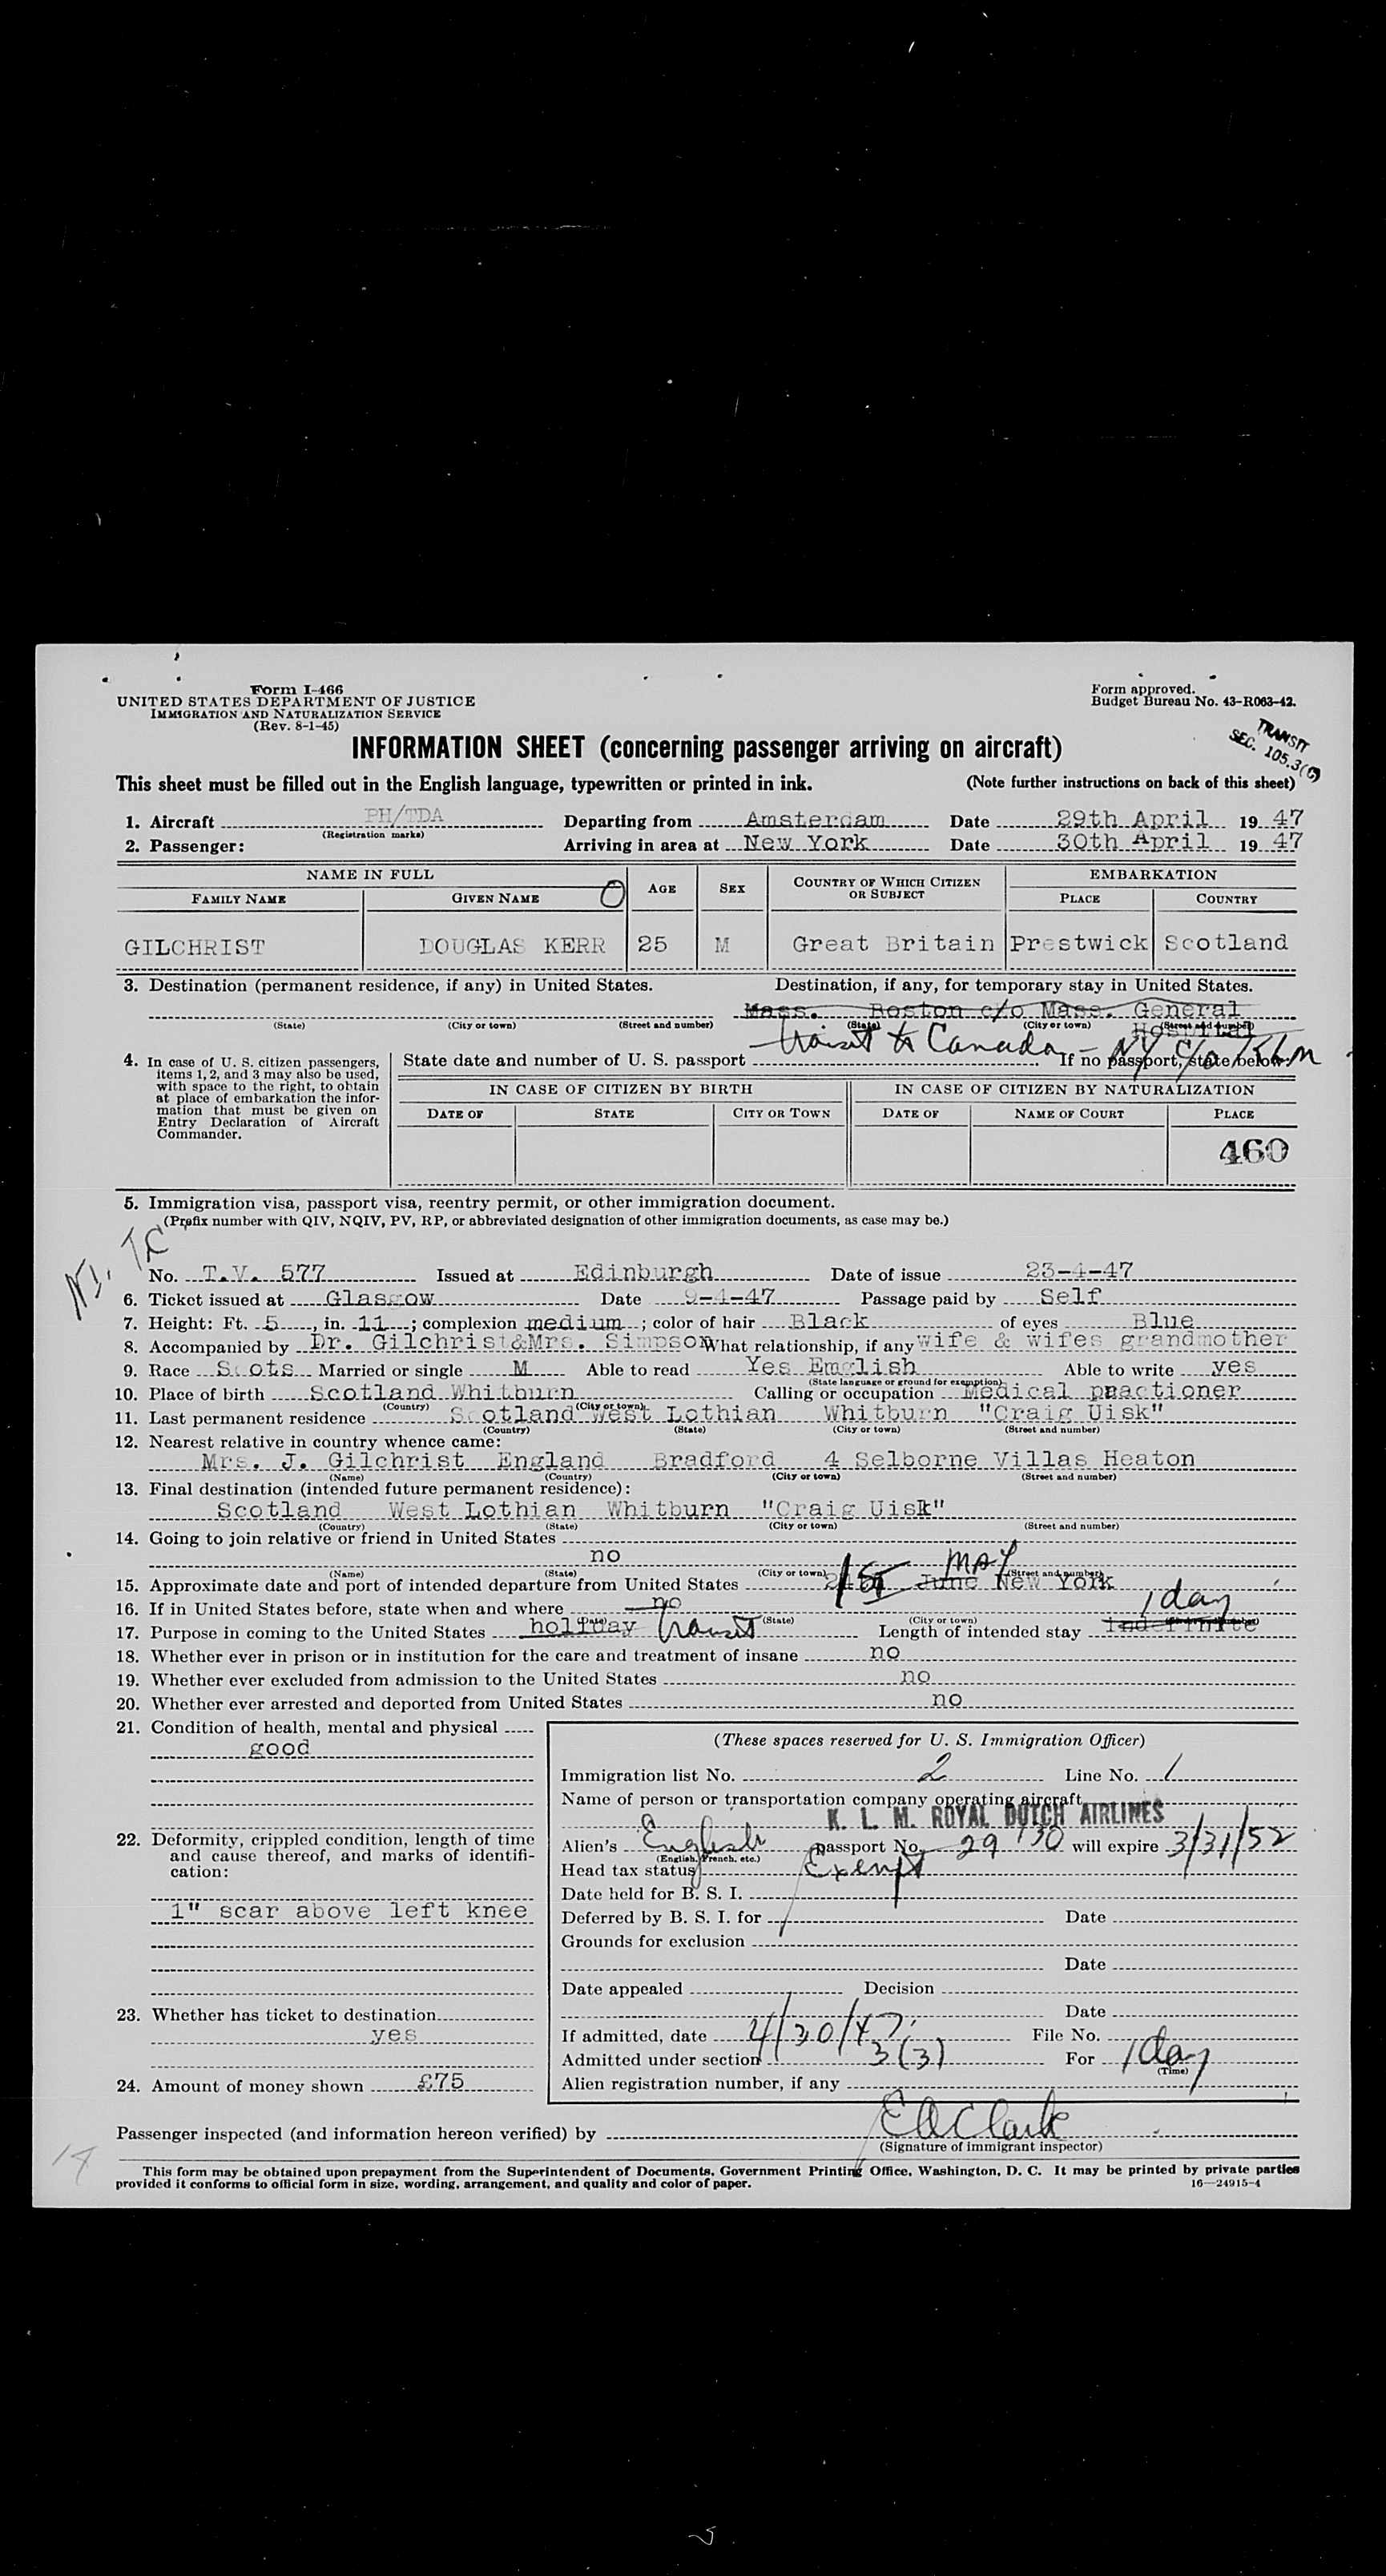 Form I-466
UNITED STATES DEPARTMENT OF JUSTICE
IMMIGRATION AND NATURALIZATION SERVICE
(Rev. 8-1-45)
Form approved.
Budget Bureau No. 43-R063-42.
INFORMATION SHEET (concerning passenger arriving on aircraft)
TRANSIT
SEC. 105.3(G)
This sheet must be filled out in the English language, typewritten or printed in ink. (Note further instructions on back of this sheet)
1. Aircraft PH/TDA Departing from Amsterdam Date 29th April 1947
(Registration marks)
2. Passenger: Arriving in area at New York Date 30th April 1947
NAME IN FULL AGE SEX COUNTRY OF WHICH CITIZEN OR SUBJECT EMBARKATION
FAMILY NAME GIVEN NAME PLACE COUNTRY
GILCHRIST DOUGLAS KERR 25 M Great Britain Prestwick Scotland
3. Destination (permanent residence, if any) in United States. Destination, if any, for temporary stay in United States.
Mass. Boston c/o Mass. General
(State) (City or town) (Street and number) (State) (City or town) (Street and number)
Hospital
transit to Canada - NY c/o KLM
4. In case of U. S. citizen passengers, items 1, 2, and 3 may also be used, with space to the right, to obtain at place of embarkation the information that must be given on Entry Declaration of Aircraft Commander.
State date and number of U. S. passport If no passport, state below
IN CASE OF CITIZEN BY BIRTH IN CASE OF CITIZEN BY NATURALIZATION
DATE OF STATE CITY OR TOWN DATE OF NAME OF COURT PLACE
460
5. Immigration visa, passport visa, reentry permit, or other immigration document.
(Prefix number with QIV, NQIV, PV, RP, or abbreviated designation of other immigration documents, as case may be.)
No. T.V. 577 Issued at Edinburgh Date of issue 23-4-47
6. Ticket issued at Glasgow Date 9-4-47 Passage paid by Self
7. Height: Ft. 5, in. 11; complexion medium; color of hair Black of eyes Blue
8. Accompanied by Dr. Gilchrist&Mrs. Simpson What relationship, if any wife & wifes grandmother
9. Race Scots Married or single M Able to read Yes Emglish Able to write yes
(State language or ground for exemption)
10. Place of birth Scotland Whitburn Calling or occupation Medical practioner
(Country) (City or town)
11. Last permanent residence Scotland West Lothian Whitburn "Craig Uisk"
(Country) (State) (City or town) (Street and number)
12. Nearest relative in country whence came:
Mrs. J. Gilchrist England Bradford 4 Selborne Villas Heaton
(Name) (Country) (City or town) (Street and number)
13. Final destination (intended future permanent residence):
Scotland West Lothian Whitburn "Craig Uisk"
(Country) (State) (City or town) (Street and number)
14. Going to join relative or friend in United States
no
(Name) (State) (City or town) (Street and number)
15. Approximate date and port of intended departure from United States 1st MAY June New York
16. If in United States before, state when and where no
(Date) (State) (City or town) (Street and number)
17. Purpose in coming to the United States holiday transit Length of intended stay indefinite 1 day
18. Whether ever in prison or in institution for the care and treatment of insane no
19. Whether ever excluded from admission to the United States no
20. Whether ever arrested and deported from United States no
21. Condition of health, mental and physical
good
22. Deformity, crippled condition, length of time and cause thereof, and marks of identification:
1" scar above left knee
23. Whether has ticket to destination
yes
24. Amount of money shown £75
(These spaces reserved for U. S. Immigration Officer)
Immigration list No. 2 Line No. 1
Name of person or transportation company operating aircraft
K. L. M. ROYAL DUTCH AIRLINES
Alien's English passport No. 29130 will expire 3/31/52
(English, French, etc.)
Head tax status Exempt
Date held for B. S. I.
Deferred by B. S. I. for Date
Grounds for exclusion
Date
Date appealed Decision
Date
If admitted, date 4/30/47 File No.
Admitted under section 3(3) For 1 day
(Time)
Alien registration number, if any
Passenger inspected (and information hereon verified) by E A Clark
(Signature of immigrant inspector)
This form may be obtained upon prepayment from the Superintendent of Documents, Government Printing Office, Washington, D. C. It may be printed by private parties
provided it conforms to official form in size, wording, arrangement, and quality and color of paper.
16—24915-4